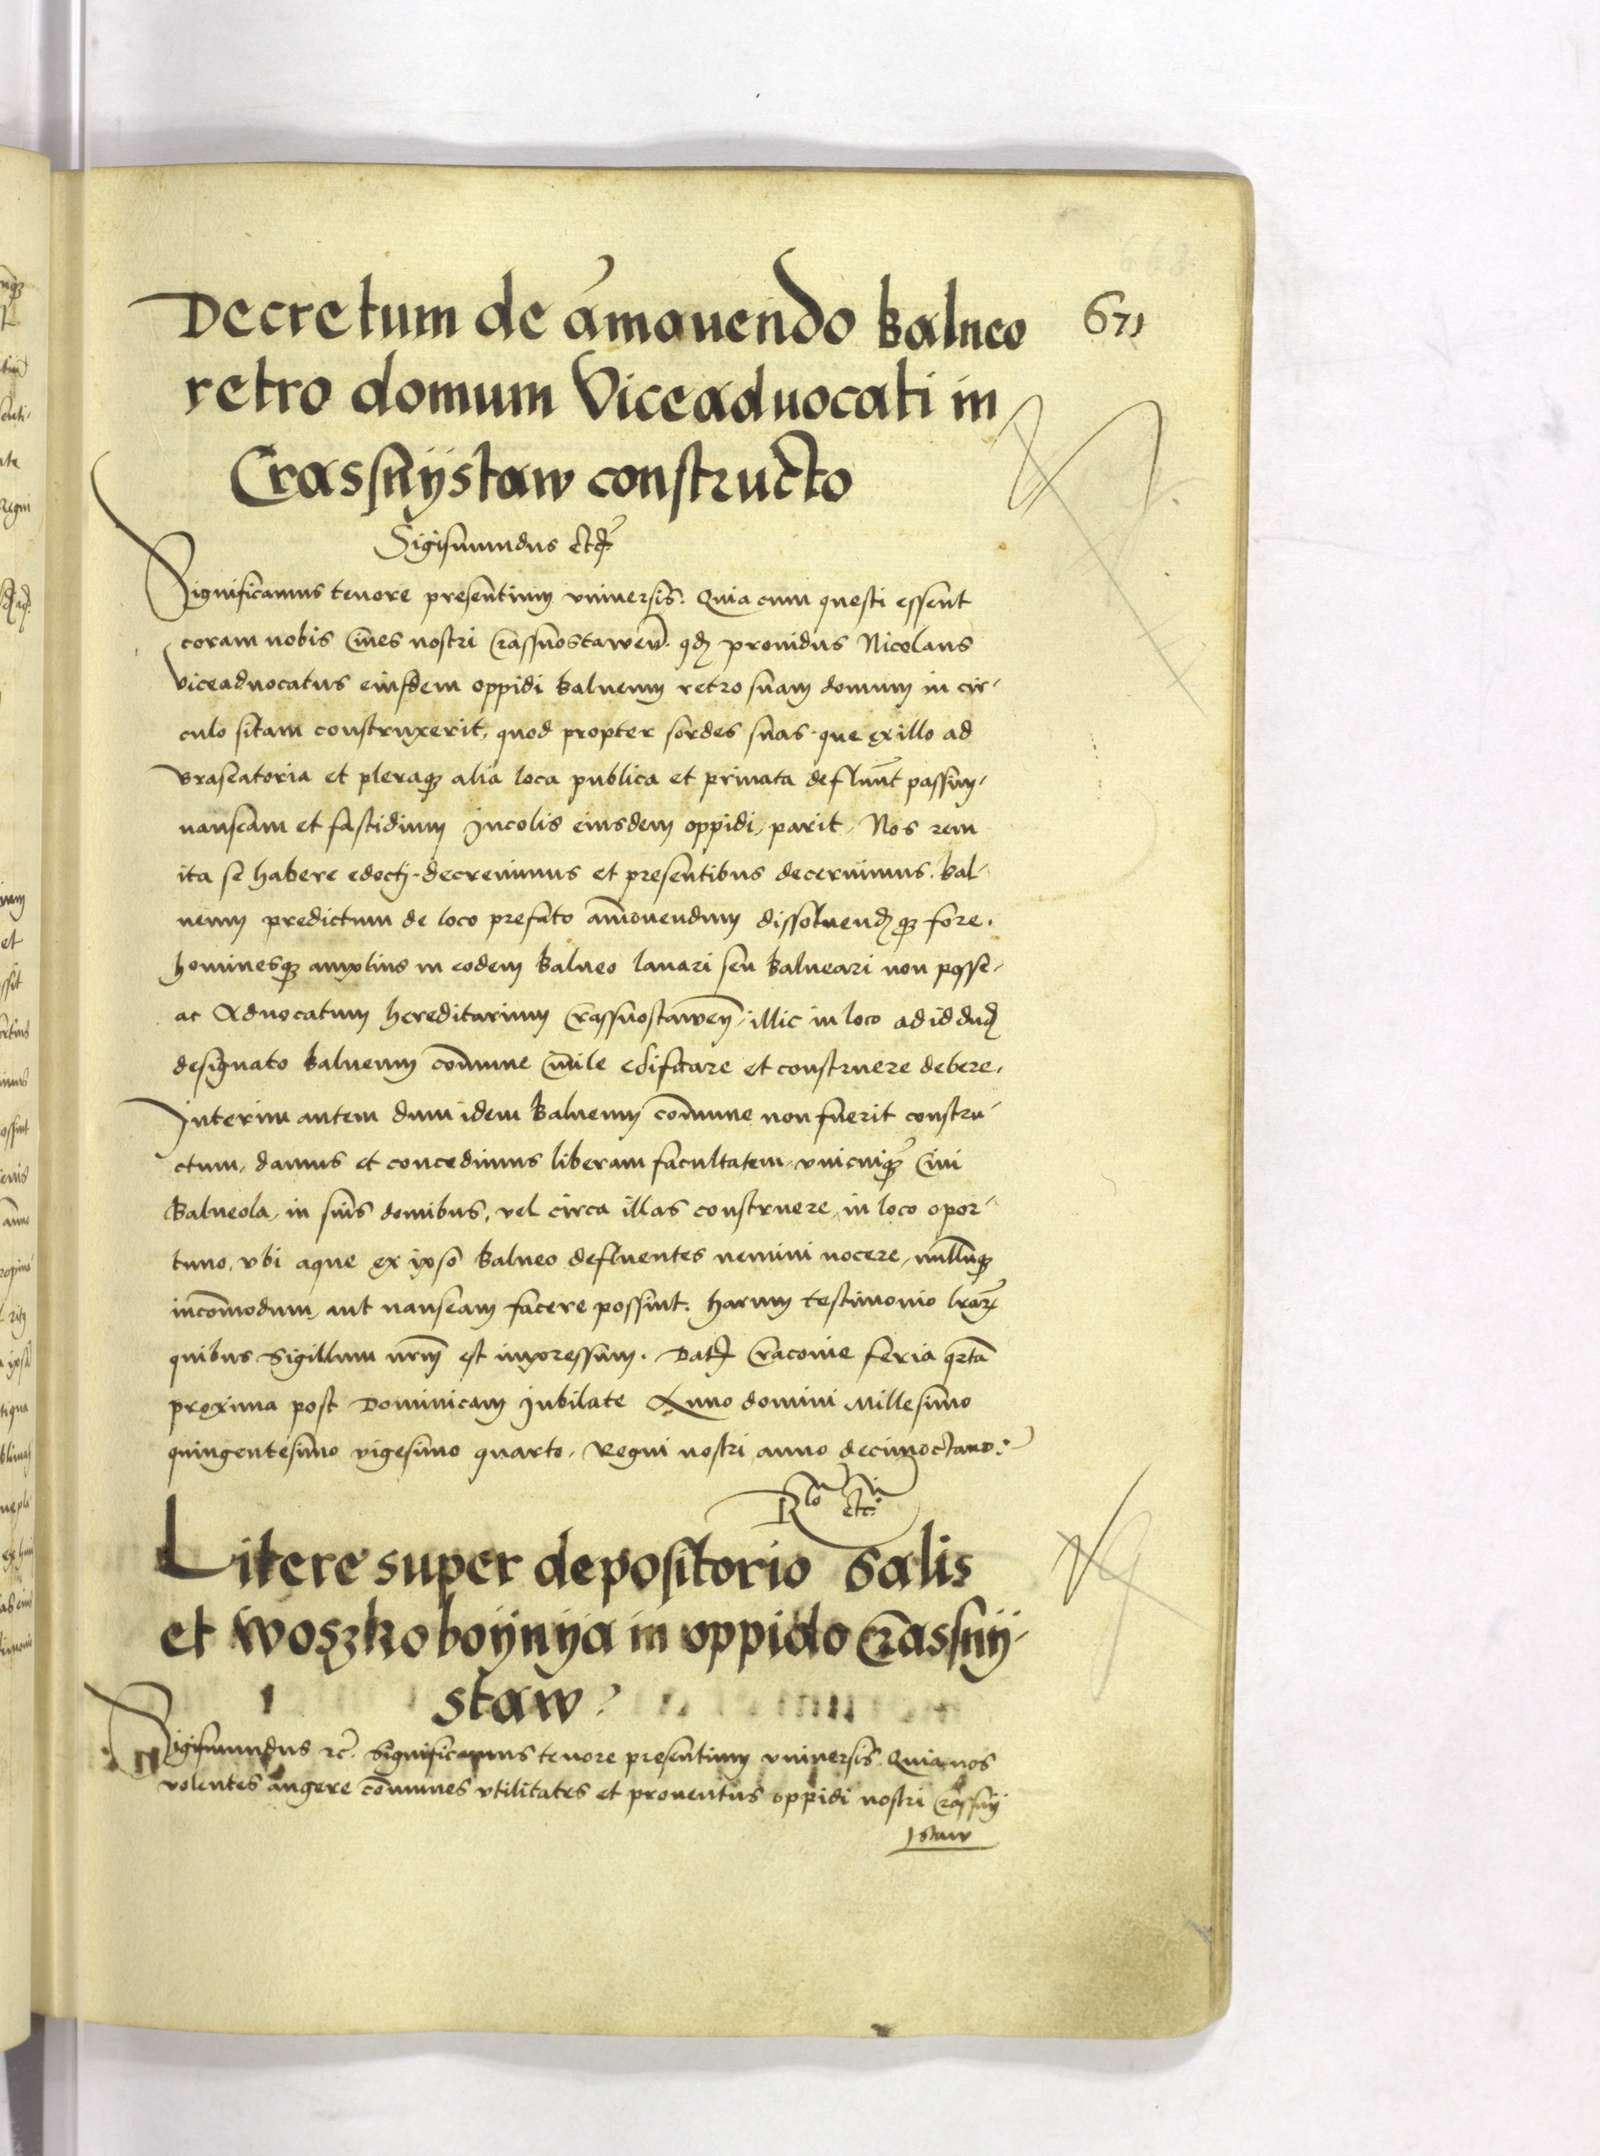 Decretum de am̄ouendo balneo
671
retro domum Viceaduocati in
Crassnÿstaw constructo
Sigismundus etc̄
Significamus tenore presentium vniuersis. Quia cum questi essent
coram nobis Ciues nostri Crassnostawień. q̄d prouidus Nicolaus
viceaduocatus eiusdem oppidi balneum retro suam domum in cir-
culo sitam construxerit, quod propter sordes suas que ex illo ad
braseatoria et pleraq3 alia loca publica et priuata defluūt passim,
nauseam et fastidium Incolis eiusdem oppidi, parit, Nos rem
ita se habere edocti decreuimus et presentibus decernimus. bal-
neum predictum de loco prefato am̄ouendum dissoluend q3 fore.
hominesq3 amplius in eodem balneo lauari seu balneari non posse,
ac Aduocatum hereditarium Crassnostawień, illic in loco ad id dud
designato balneum com̄une Ciuile edificare et construere debere.
Interim autem dum idem balneum com̄une non fuerit constru-
ctum, damus et concedimus liberam facultatem, vnicuiq3 Ciui
balneola, in suis domibus, vel circa illas construere, in loco opor-
tuno, vbi aque ex ipso balneo defluentes nemini nocere, nullūq3
incom̄odum, aut nauseam facere possint. harum testimonio lrarū
quibus Sigillum nrm̄ est impressum. Dat Cracouie feria q̄rta
proxima post Dominicam Iubilate Anno domini Millesimo
quingentesimo vigesimo quarto, Regni nostri anno decimooctauo:
Rlo etc.
Litere super depositorio Salis
et woszkoboÿnÿa in oppido Crassnÿ-
staw
Sigismundus etc̄. Significamus tenore presentium vniuersis. Quia nos
volentes augere com̄unes vtilitates et prouentus oppidi nostri Crassnÿ
staw